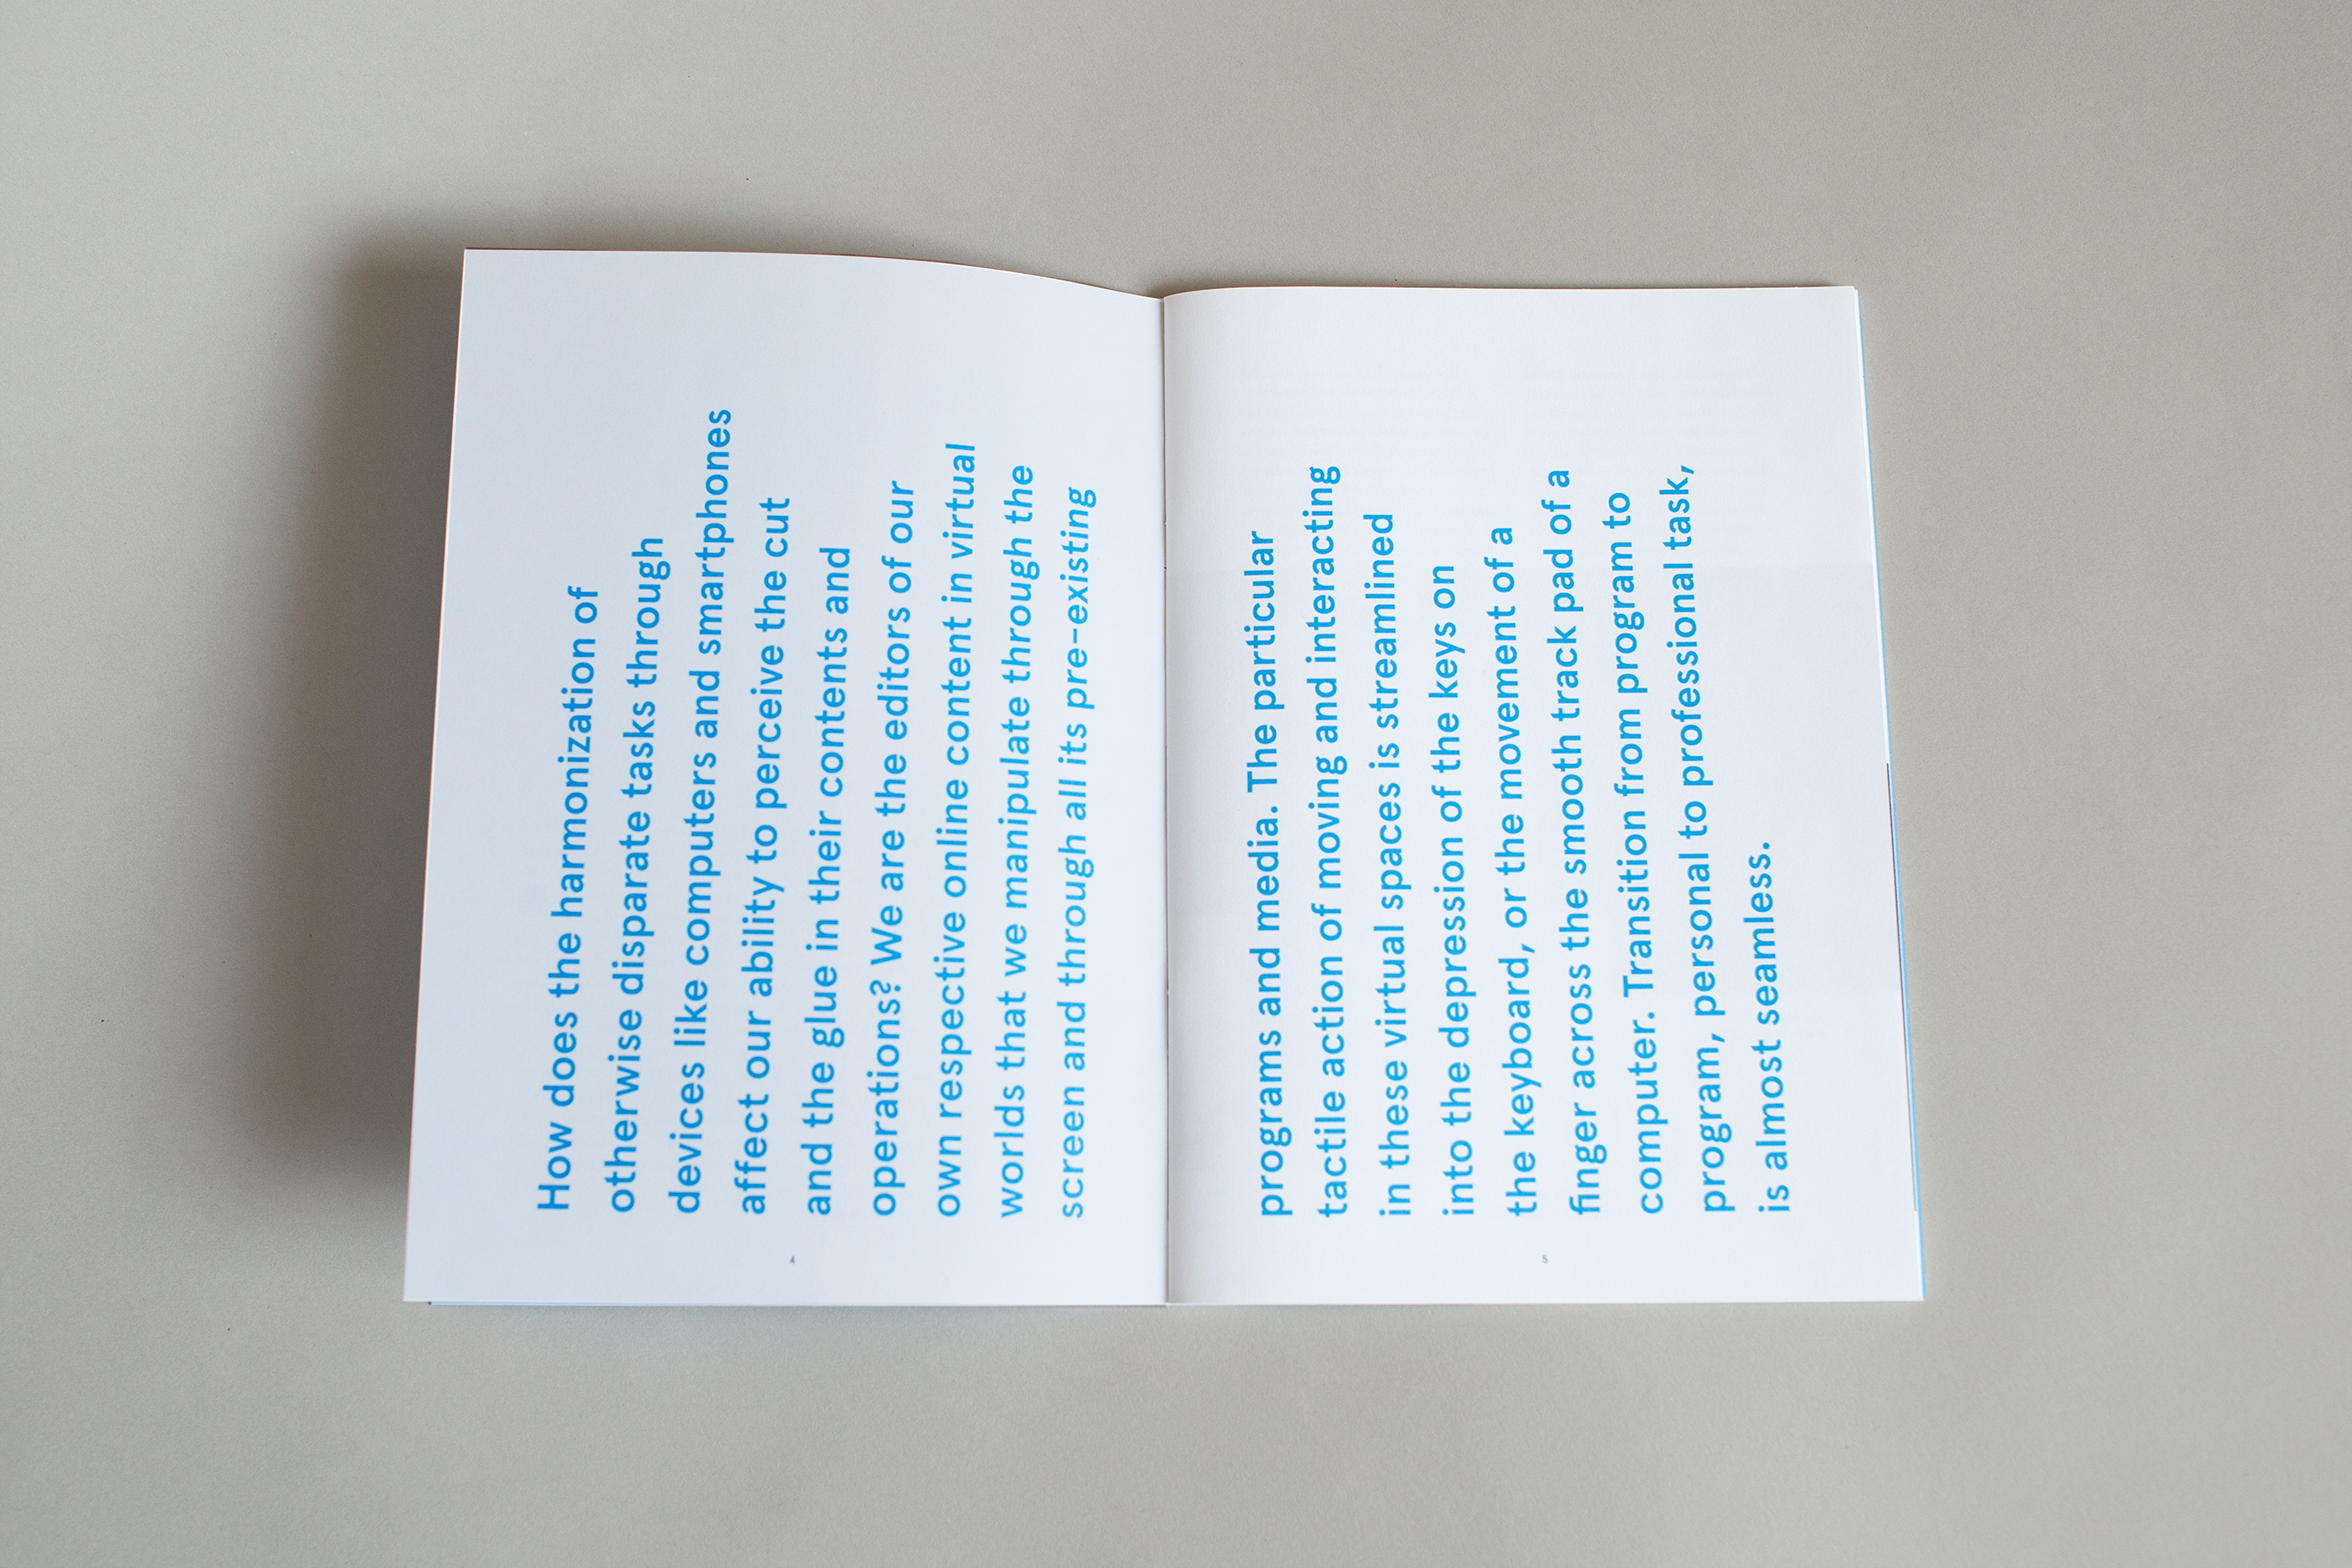 How does the harmonization of
otherwise disparate tasks through
devices like computers and smartphones
affect our ability to perceive the cut
and the glue in their contents and
operations? We are the editors of our
own respective online content in virtual
worlds that we manipulate through the
screen and through all its pre-existing
4
programs and media. The particular
tactile action of moving and interacting
in these virtual spaces is streamlined
into the depression of the keys on
the keyboard, or the movement of a
finger across the smooth track pad of a
computer. Transition from program to
program, personal to professional task,
is almost seamless.
5